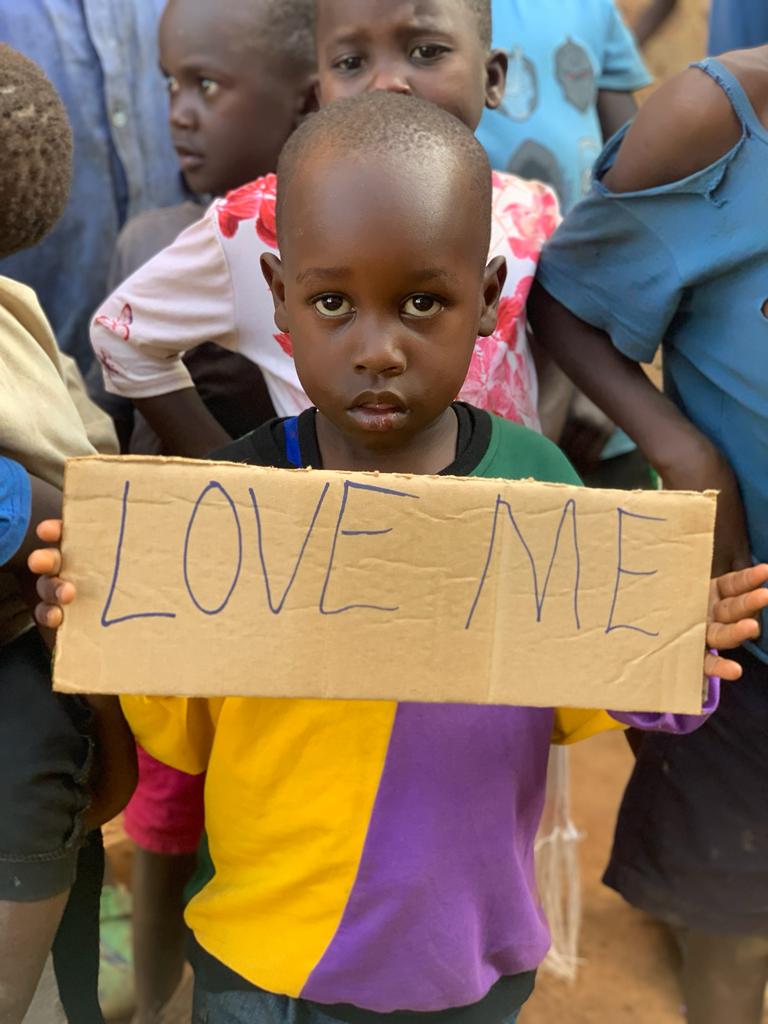 LOVE ME